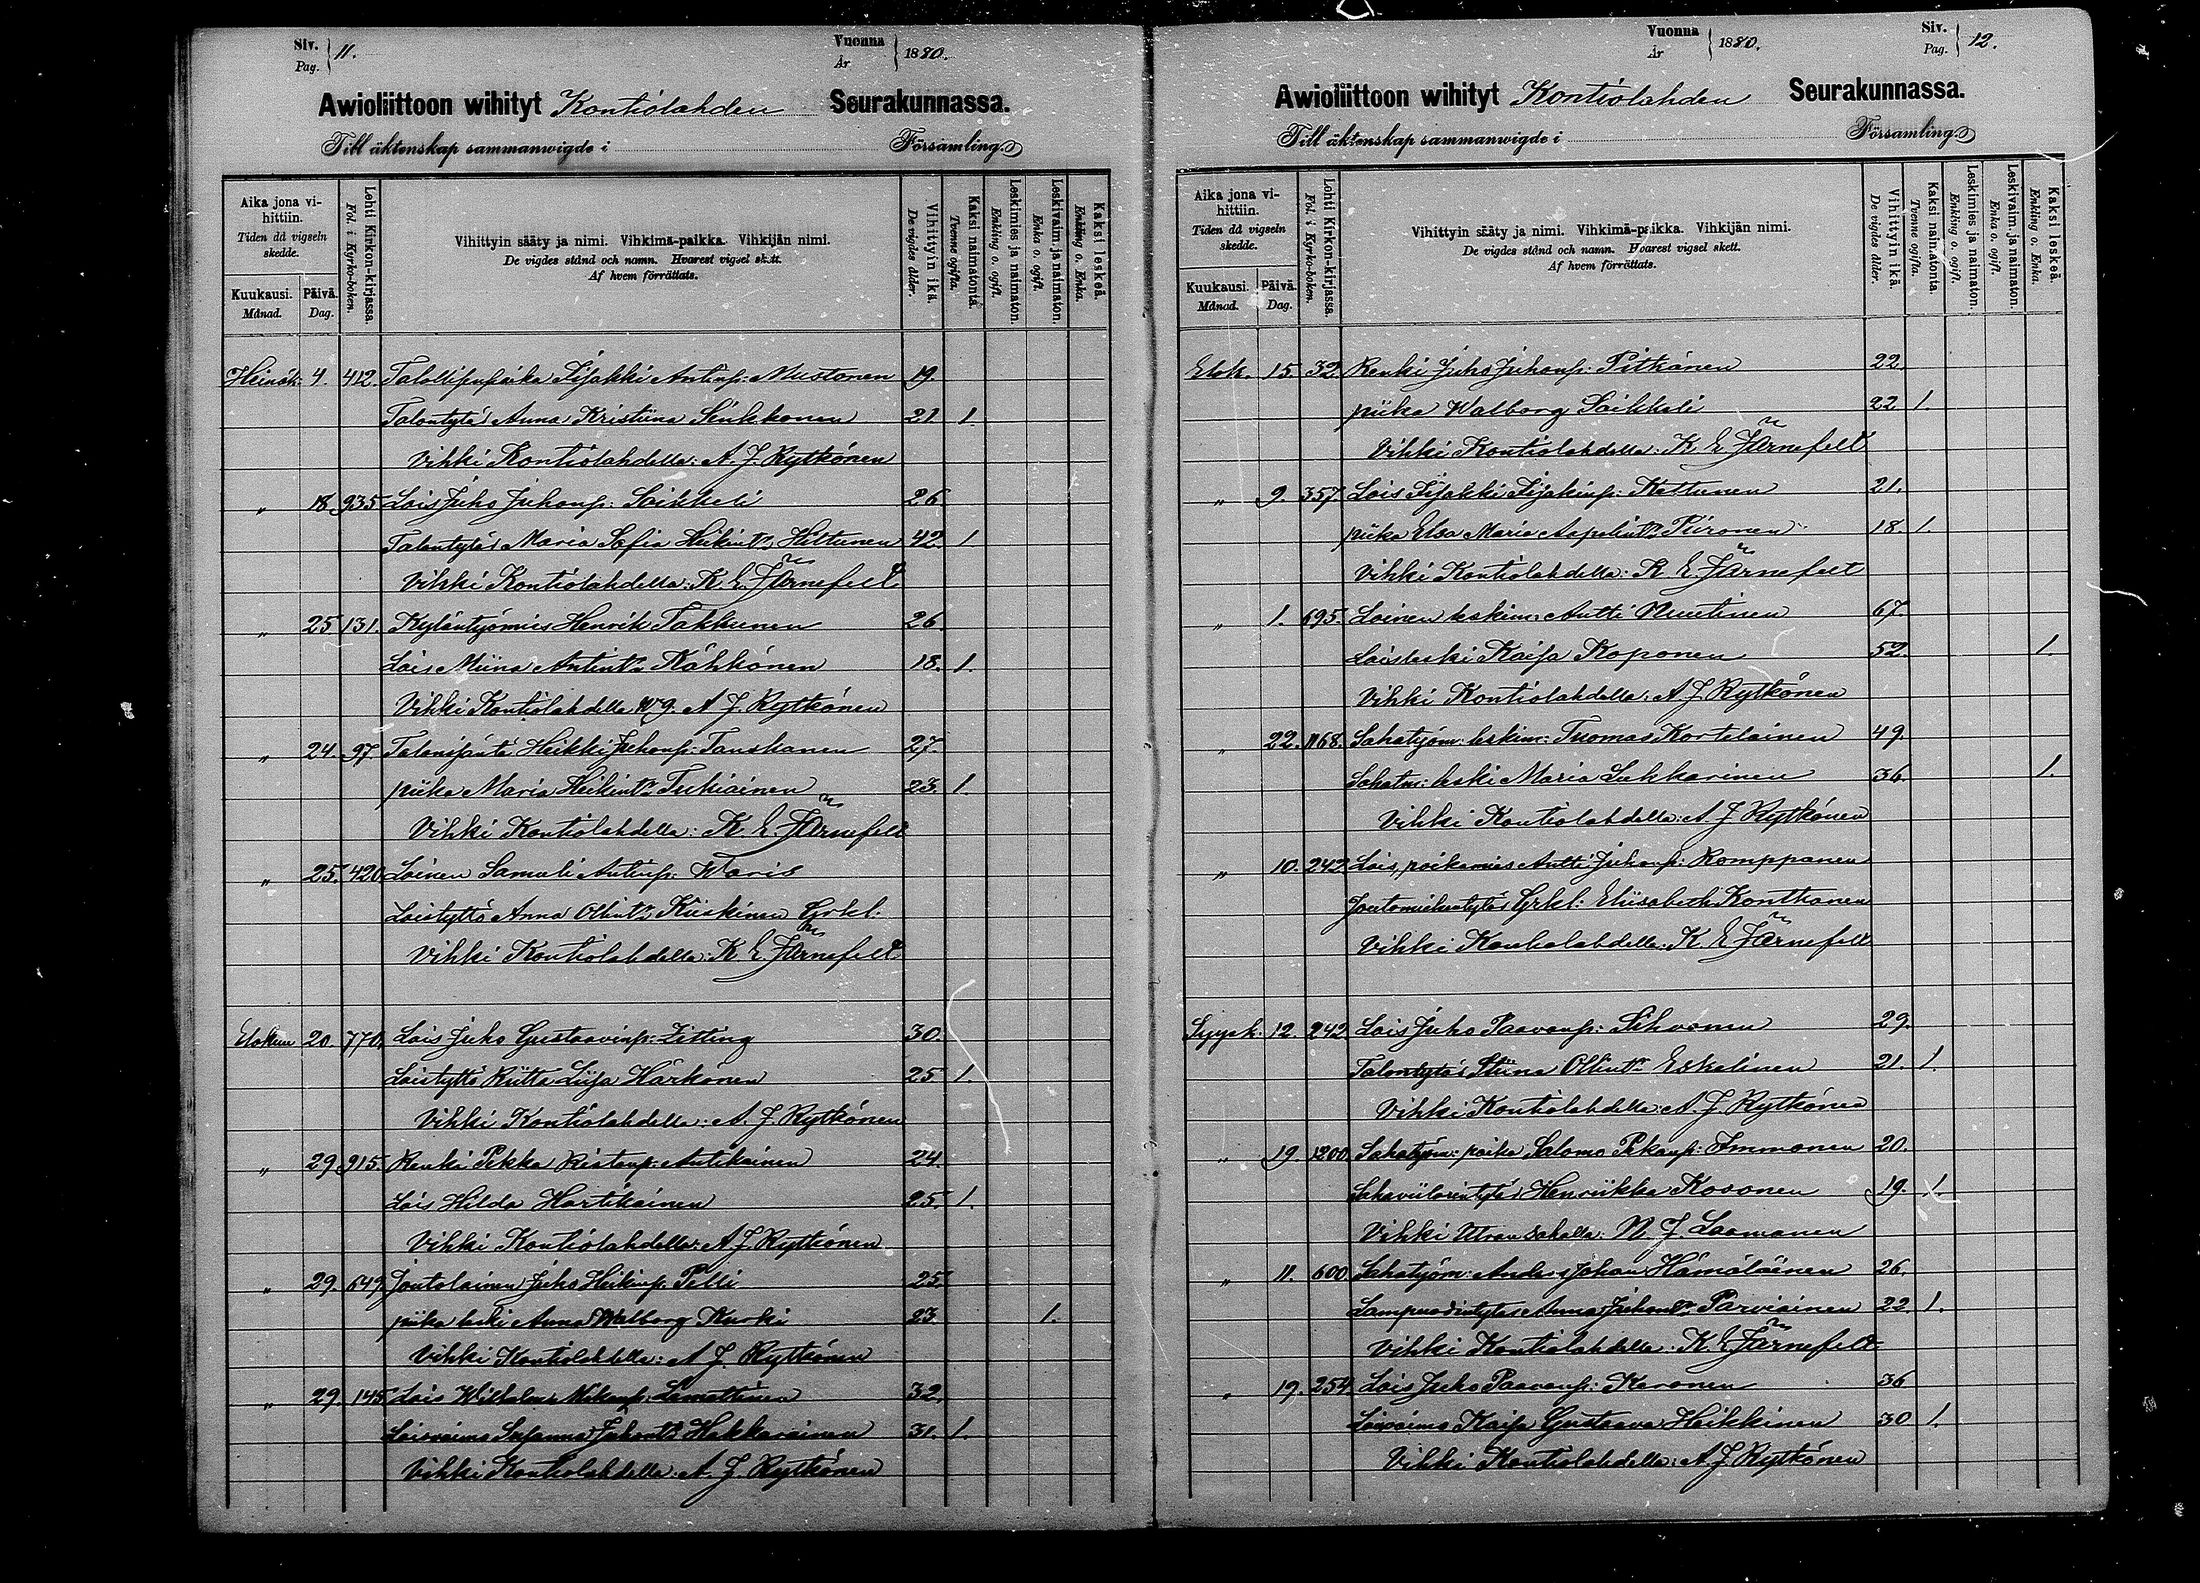 Siv. Pag. 11.
Vuonna År 1880.
Awioliittoon wihityt Kontiolahden Seurakunnassa.
Till äktenskap sammanwigde i Församling
Aika jona vihittiin. Tiden då vigseln skedde.
Kuukausi. Månad.
Päivä. Dag.
Lehti Kirkon-kirjassa. Fol. i Kyrko-boken.
Vihittyin sääty ja nimi. Vihkimä-paikka. Vihkijän nimi.
De vigdes stånd och namn. Hvarest vigsel skett.
Af hvem förrättats.
Vihittyin ikä. De vigdes ålder.
Kaksi naimatonta. Tvenne ogifta.
Leskimies ja naimaton. Enkling o. ogift.
Leskivaim. ja naimaton. Enka o. ogift.
Kaksi leskeä. Enkling o. Enka.
Heinäk. 4. 412. Talollisenpoika Iisakki Antinp: Mustonen 19.
Talontytö Anna Kristiina Sinkkonen 21. 1.
Vihki Kontiolahdella: A. J. Rytkönen
" 18. 935. Lois Juho Juhonp: Saikkeli 26.
Talontytö Maria Sofia Heikint: Hiltunen 42. 1
Vihki Kontiolahdella: K. E. Järnefelt
" 25 131. Kyläntyömies Henrik Takkunen 26.
Lois Miina Antint: Kähkönen 18. 1.
Vihki Kontiolahdella A J. Rytkönen
" 24. 97. Talonisäntä Heikki Juhonp: Tanskanen 27.
piika Maria Heikint: Tukiainen 23. 1.
Vihki Kontiolahdella: K. E. Järnefelt
" 25. 420. Loinen Samuli Antinp: Waris
Loistyttö Anna Ollint: Kiiskinen Grkl:
Vihki Kontiolahdella: K E Järnefelt
Elokuu 20. 770. Lois Juho Gustaavinp: Zitting 30.
Loistyttö Riitta Liisa Härkönen 25 1.
Vihki Kontiolahdella: A. J. Rytkönen
" 29. 915. Renki Pekka Ristonp: Antikainen 24.
Lois Hilda Hartikainen 25. 1.
Vihki Kontiolahdella: A J. Rytkönen
" 29. 649. Joutolainen Juho Heikinp: Pelli 25.
piika leski Anna Walborg Kurki 23. 1.
Vihki Kontiolahdella: A J. Rytkönen
" 29. 145. Lois Wilhelm Lamottinen 32.
Loisvaimo Susanna Juhont: Hakkarainen 31. 1.
Vihki Kontiolahdella: A. J. Rytkönen
Vuonna År 1880.
Siv. Pag. 12.
Awioliittoon wihityt Kontiolahden Seurakunnassa.
Till äktenskap sammanwigde i Församling
Aika jona vihittiin. Tiden då vigseln skedde.
Kuukausi. Månad.
Päivä. Dag.
Lehti Kirkon-kirjassa. Fol. i Kyrko-boken.
Vihittyin sääty ja nimi. Vihkimä-paikka. Vihkijän nimi.
De vigdes stånd och namn. Hvarest vigsel skett.
Af hvem förrättats.
Vihittyin ikä. De vigdes ålder.
Kaksi naimatonta. Tvenne ogifta.
Leskimies ja naimaton. Enkling o. ogift.
Leskivaim. ja naimaton. Enka o. ogift.
Kaksi leskeä. Enkling o. Enka.
Elok. 15. 32. Renki Juho Juhonp: Pitkänen 22.
piika Walborg Saikkeli 22 1.
Vihki Kontiolahdella: K. E. Järnefelt
" 9. 357. Lois Iisakki Iisakinp: Kettunen 21.
piika Elsa Maria Aapelint: Piironen 18. 1.
Vihki Kontiolahdella: K E. Järnefelt
" 1. 695. Loinen leskim: Antti Nuutinen 67.
Loisleski Kaisa Koponen 52. 1.
Vihki Kontiolahdella: A J Rytkönen
" 22. 1168. Sahatyöm: leskim: Tuomas Kortelainen 49.
Sahatm: leski Maria Lukkarinen 36. 1.
Vihki Kontiolahdella: A J Rytkönen
" 10. 242. Lois, poikamies Antti Juhonp: Romppanen
Joutomiehentytö Grkl: Eliisabeth Konttonen
Vihki Kontiolahdella: K E Järnefelt
Syysk. 12. 242. Lois Juho Paavonp: Sihvonen 29.
Talontytö Stiina Ollint: Eskelinen 21. 1.
Vihki Kontiolahdella: A. J Rytkönen
" 19. 1200. Sahatyöm: poika Salomo Pekanp: Immonen 20.
Sahaviilarintytö Henriikka Kosonen 19. 1.
Vihki Utran sahalla: N. J. Laamanen
" 11. 600 Sahatyöm: Anders Johan Hämäläinen 26.
Lampuodintytö Anna Juhont: Parviainen 22. 1.
Vihki Kontiolahdella: K. E Järnefelt
" 19. 254. Lois Juho Paavonp: Keronen 36
Loisvaimo Kaisa Gustaava Heikkinen 30 1.
Vihki Kontiolahdella: A J Rytkönen